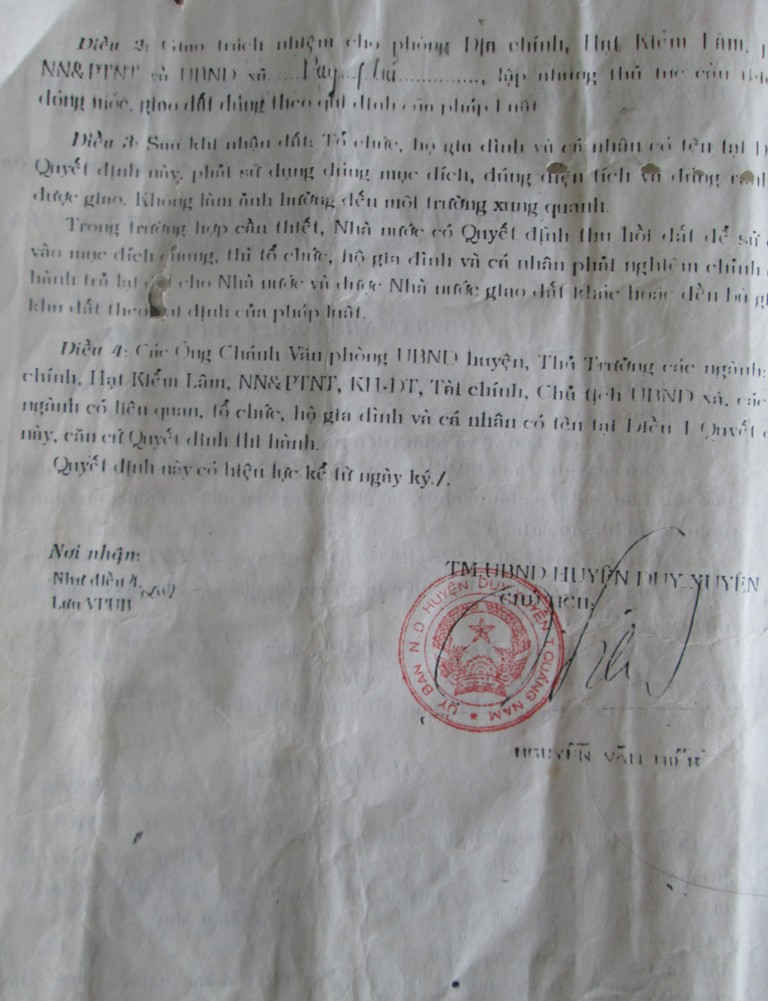 Điều 2: Giao trách nhiệm cho phòng Địa chính, Hạt Kiểm Lâm,
NN&PTNT và UBND xã .... Duy Phú ............., lập những thủ tục cần
đóng mốc, giao đất đúng theo qui định của pháp luật
Điều 3: Sau khi nhận đất: Tổ chức, hộ gia đình và cá nhân có tên tại
Quyết định này, phải sử dụng đúng mục đích, đúng diện tích và đúng
được giao. Không làm ảnh hưởng đến môi trường xung quanh.
Trong trường hợp cần thiết, Nhà nước có Quyết định thu hồi đất để sử
vào mục đích chung, thì tổ chức, hộ gia đình và cá nhân phải nghiêm chỉnh
hành trả lại cho Nhà nước và được Nhà nước giao đất khác hoặc đền bù
khu đất theo định của pháp luật.
Điều 4: Các Ông Chánh Văn phòng UBND huyện, Thủ Trưởng các ngành:
chính, Hạt Kiểm Lâm, NN&PTNT, KH-ĐT, Tài chính, Chủ tịch UBND xã, các
ngành có liên quan, tổ chức, hộ gia đình và cá nhân có tên tại Điều 1 Quyết
này, căn cứ Quyết định thi hành.
Quyết định này có hiệu lực kể từ ngày ký./.
Nơi nhận:
-Như điều 4.
Lưu VPUB
TM.UBND HUYỆN DUY XUYÊN
CHỦ TỊCH
ỦY BAN N.D HUYỆN DUY XUYÊN T.QUẢNG NAM
NGUYỄN VĂN